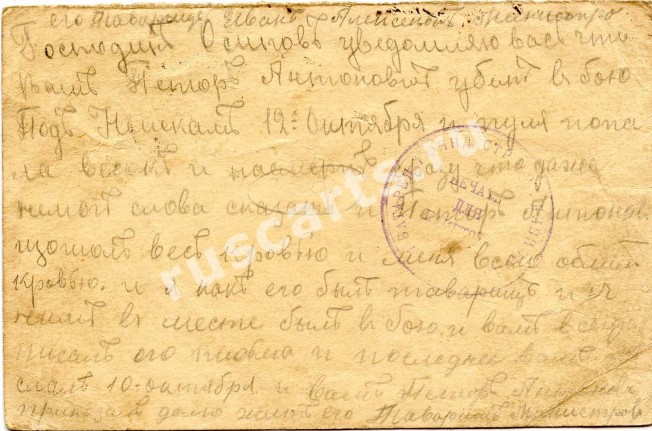 его таварищ Иванъ Алексеевъ
Господинъ Осиповъ уведомляю васъ что
вашъ Петоръ Антоновичь убитъ в бою
Подъ 12го октября и пуля попа
ла ввесокъ и насмерть что даже
немогъ слова сказать и Петоръ Антонов
изошолъ весь кровью и меня всего облилъ
кровью. и я какъ его былъ таварищъ и с
нимъ в месте былъ в бою. и вамъ всегда
писалъ его писма и последнее вамъ
слалъ 10-октября и вашъ Петоръ Антонович
приказа в долго жить его Таварищъ
ПЕЧАТЬ
ДЛЯ
ruscarts.ru